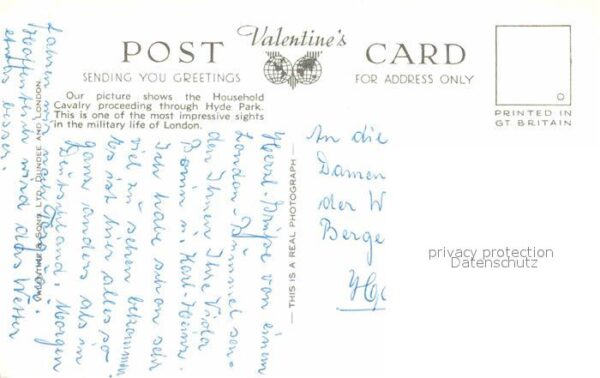 POST Valentine's CARD
SENDING YOU GREETINGS
FOR ADDRESS ONLY
Our picture shows the Household
Cavalry proceeding through Hyde Park.
This is one of the most impressive sights
in the military life of London.
PRINTED IN
GT BRITAIN
VALENTINE & SONS LTD. DUNDEE AND LONDON.
— THIS IS A REAL PHOTOGRAPH —
Herzl. Grüße von einem
London-Bummel sen-
den Ihnen Ihre
u. Karl-Heinz.
Ich habe schon sehr
viel zu sehen bekommen.
Es ist hier alles so
ganz anders als in
Deutschland. Morgen
fahren wir nach
Hoffentlich wird das Wetter
etwas besser.
An die
Damen
der W
Berge
privacy protection
Datenschutz